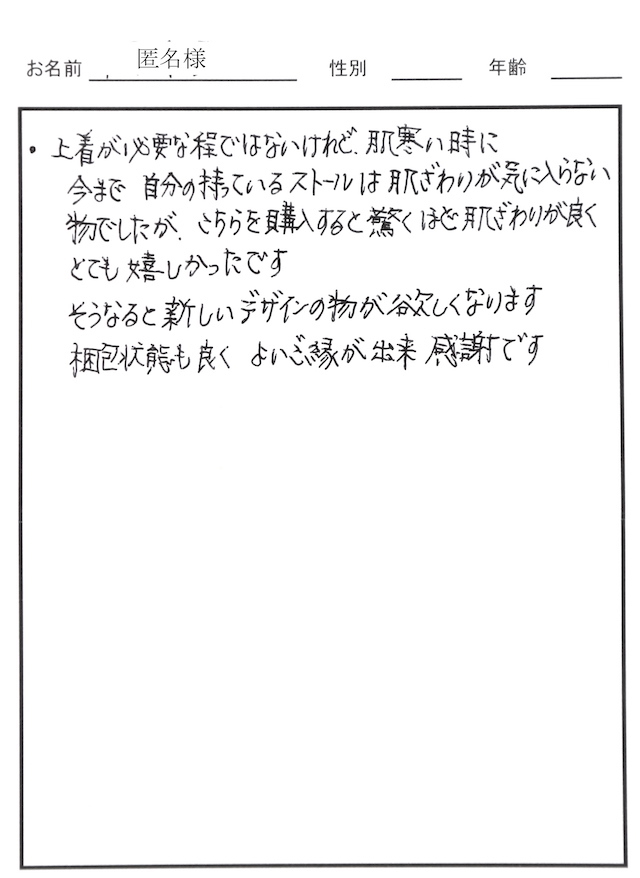 お名前 匿名様 性別 年齢
・上着が必要な程ではないけれど、肌寒い時に
今まで 自分の持っているストールは肌ざわりが気に入らない
物でしたが、こちらを購入すると驚くほど肌ざわりが良く
とても嬉しかったです
そうなると新しいデザインの物が欲しくなります
梱包状態も良く よいご縁が出来 感謝です